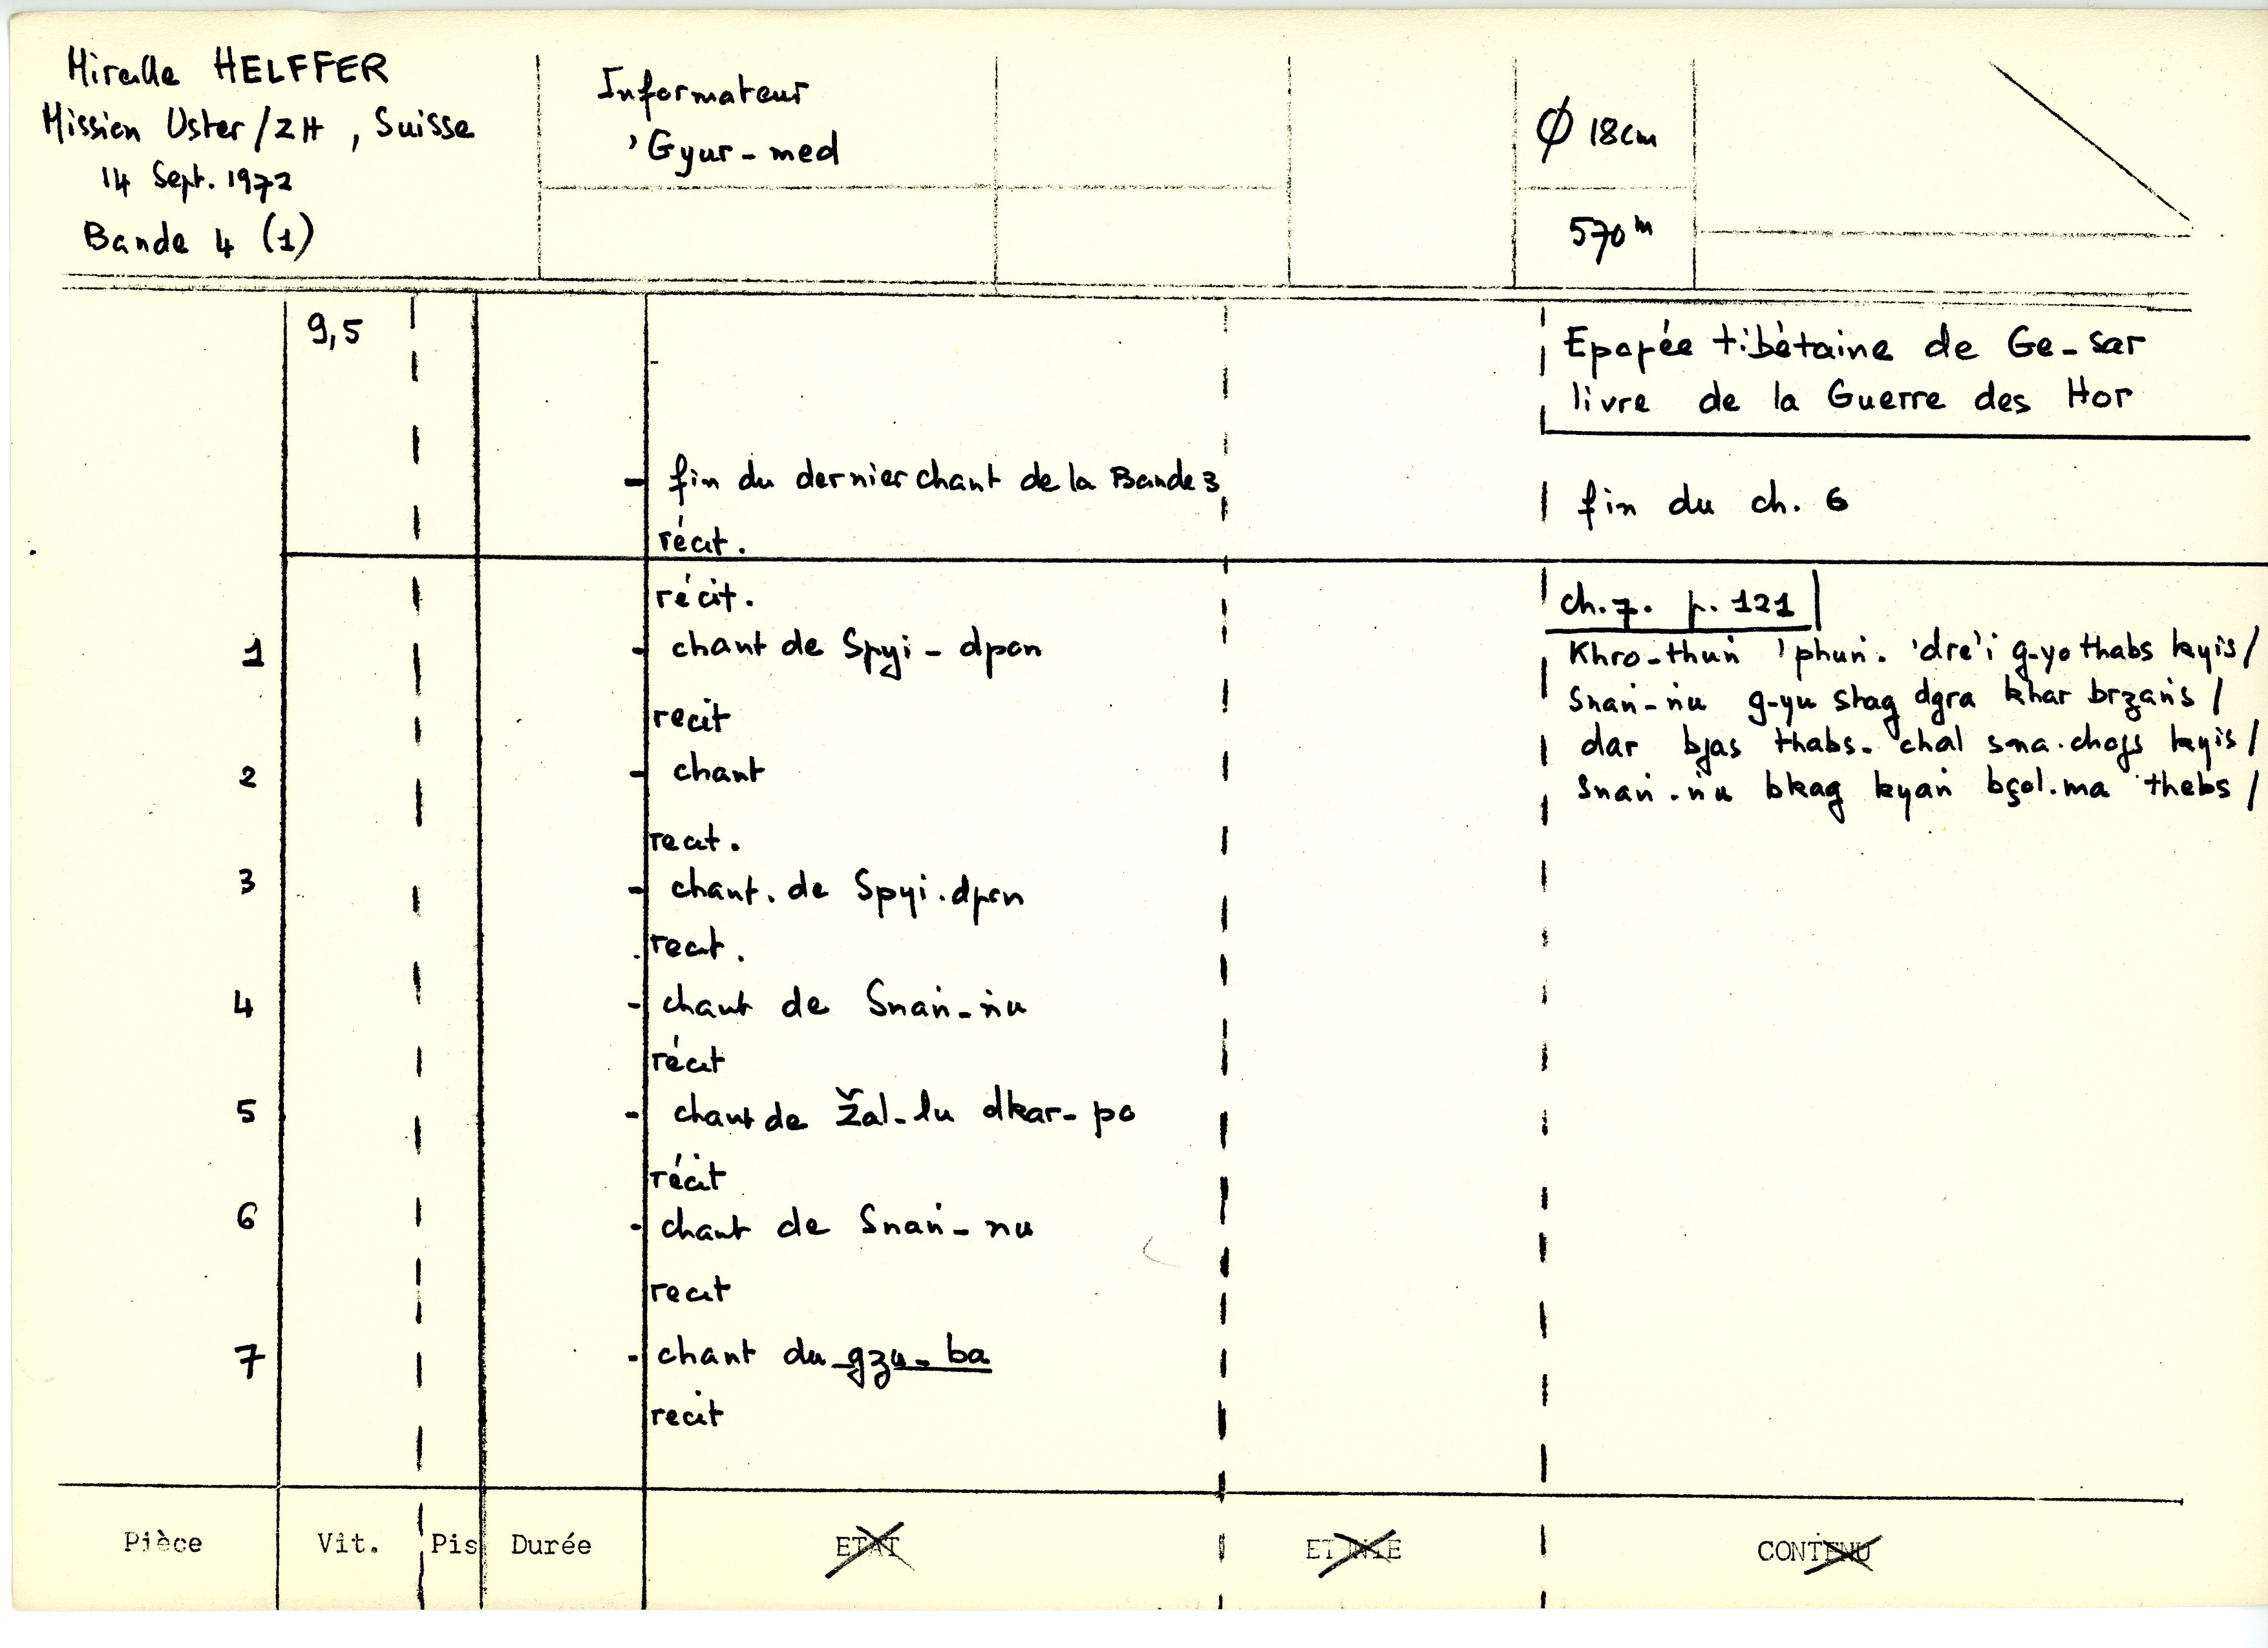 Mireille HELFFER
Mission Uster/ZH, Suisse
14 Sept. 1972
Bande 4 (1)
Informateur
'Gyur-med
Ø 18cm
570 m
9,5
Epopée tibétaine de Ge-sar
livre de la Guerre des Hor
- fin du dernier chant de la Bande 3
récit.
fin du ch. 6
récit.
ch.7. p. 121
1 - chant de Spyi-dpon
récit
2 - chant
récit.
3 - chant. de Spyi.dpon
récit.
4 - chant de Snaṅ-ṅu
récit
5 - chant de Žal-lu dkar-po
récit
6 - chant de Snaṅ-nu
recit
7 - chant du gzu-ba
recit
Khro-thuṅ 'phuṅ. 'dre'i g-yo thabs kyis/
Snaṅ-ṅu g-yu stag dgra khar brzaṅs/
dar bjas thabs. chal sna.chogs kyis/
Snaṅ.ṅu bkag kyaṅ bşol.ma thebs/
Pièce Vit. Pis Durée ETAT ETHNIE CONTENU